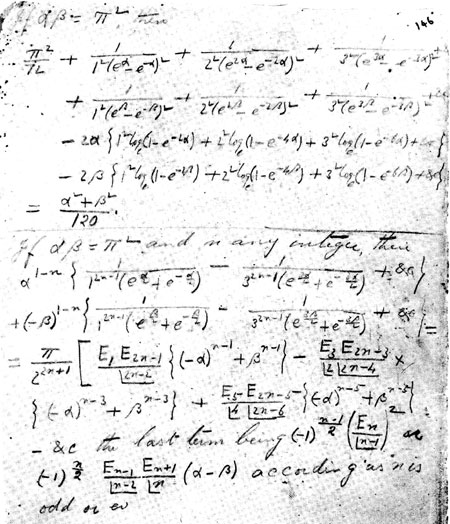 If αβ = π², then
146
π²/12 + 1/(1²(e^α - e^-α)²) + 1/(2²(e^2α - e^-2α)²) + 1/(3²(e^3α - e^-3α)²) +
+ 1/(1²(e^β - e^-β)²) + 1/(2²(e^2β - e^-2β)²) + 1/(3²(e^3β - e^-3β)²) + &c
- 2α {1² log_e(1-e^-2α) + 2² log_e(1-e^-4α) + 3² log_e(1-e^-6α) + &c}
- 2β {1² log_e(1-e^-2β) + 2² log_e(1-e^-4β) + 3² log_e(1-e^-6β) + &c}
= (α² + β²)/120.
If αβ = π² and n any integer, then
α^(1-n) {1/(1^(2n-1)(e^(α/2) + e^(-α/2))) - 1/(3^(2n-1)(e^(3α/2) + e^(-3α/2))) + &c}
+ (-β)^(1-n) {1/(1^(2n-1)(e^(β/2) + e^(-β/2))) - 1/(3^(2n-1)(e^(3β/2) + e^(-3β/2))) + &c} =
= π/2^(2n+1) [E₁E_(2n-1)/|2n-2 {(-α)^(n-1) + β^(n-1)} - E₃E_(2n-3)/(|2 |2n-4) ×
{(-α)^(n-3) + β^(n-3)} + E₅E_(2n-5)/(|4 |2n-6) {(-α)^(n-5) + β^(n-5)}
- &c the last term being (-1)^((n-1)/2) (E_n/|n-1)² or
(-1)^(n/2) E_(n-1)/|n-2 E_(n+1)/|n (α-β) according as n is
odd or ev